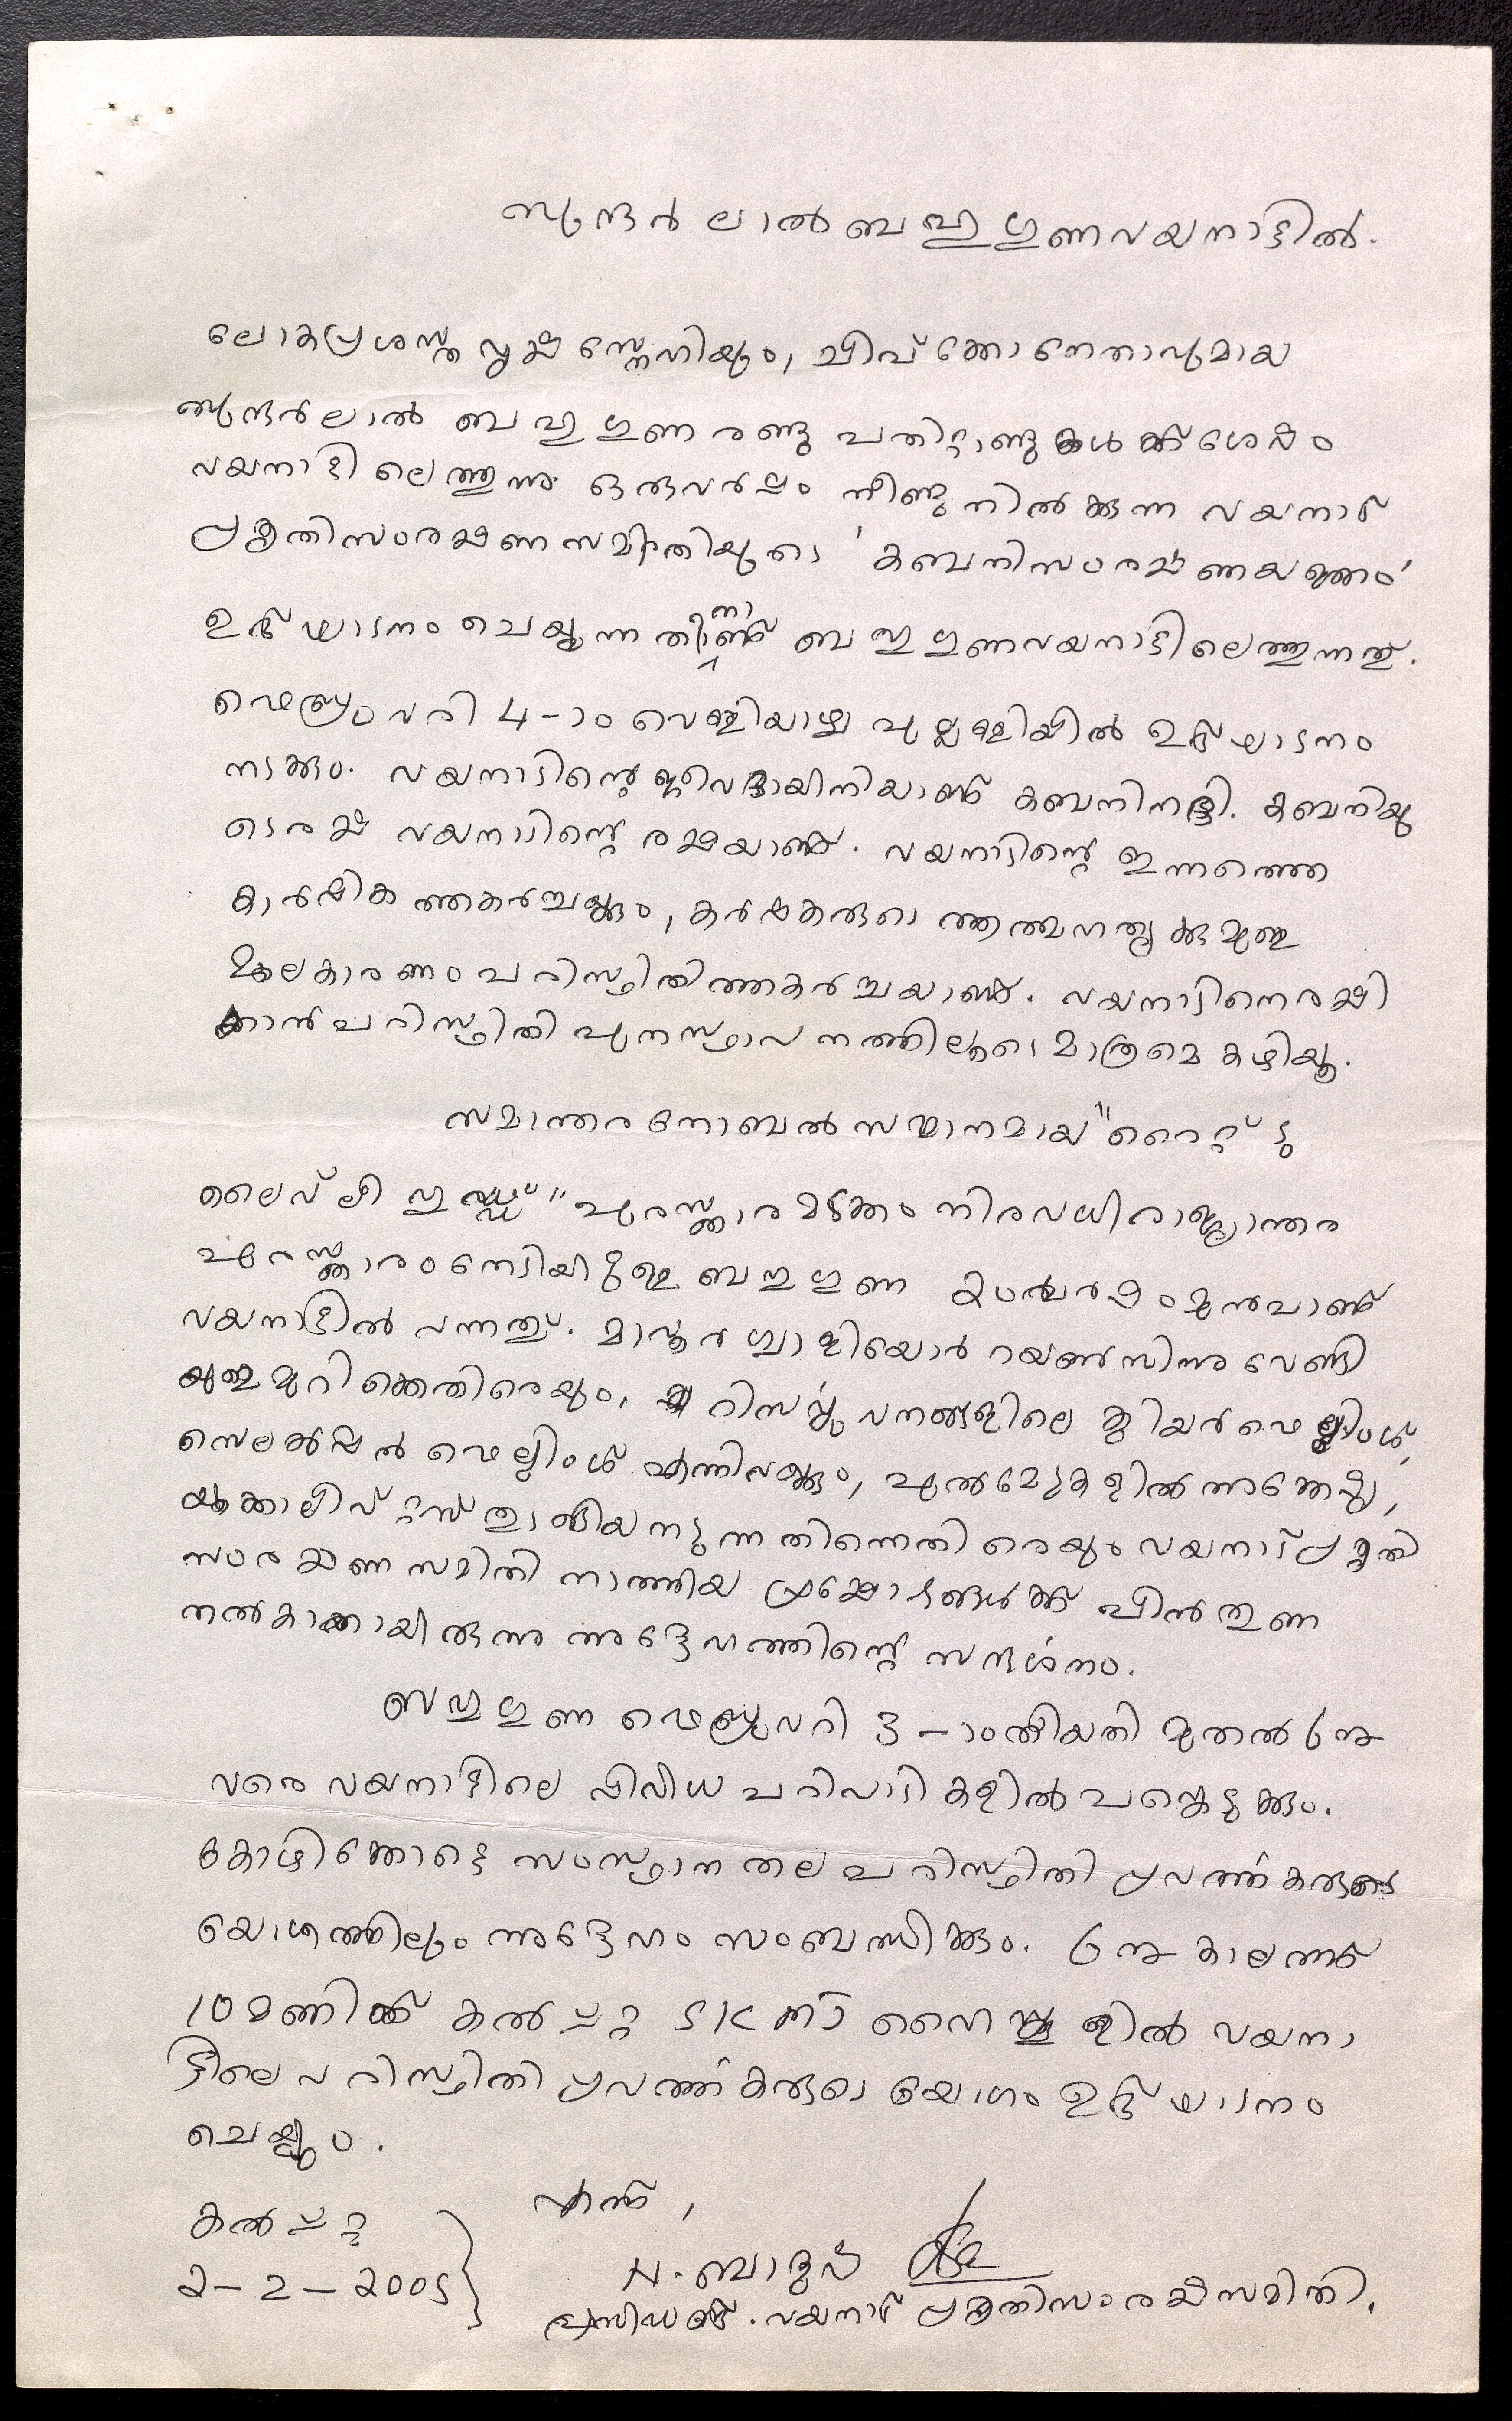 സുന്ദർ ലാൽ ബഹുഗുണ വയനാട്ടിൽ.
ലോകപ്രശസ്ത വൃക്ഷ സ്നേഹിയും, ചിപ് ക്കോ നേതാവുമായ
സുന്ദർലാൽ ബഹുഗുണ രണ്ടു പതിറ്റാണ്ടുകൾക്ക് ശേഷം
വയനാട്ടിലെത്തുന്നു. ഒരുവർഷം നീണ്ടുനിൽക്കുന്ന വയനാട്
പ്രകൃതിസംരക്ഷണ സമിതിയുടെ 'കബനിസംരക്ഷണയജ്ഞം'
ഉദ്ഘാടനം ചെയ്യുന്നതിനാണ് ബഹുഗുണ വയനാട്ടിലെത്തുന്നത്.
ഫെബ്രുവരി 4-ാം വെള്ളിയാഴ്ച പുല്പള്ളിയിൽ ഉദ്ഘാടനം
നടക്കും. വയനാടിന്റെ ജീവദായിനിയാണ് കബനിനദി. കബനിയു
ടെ രക്ഷ വയനാടിന്റെ രക്ഷയാണ്. വയനാടിന്റെ ഇന്നത്തെ
കാർഷിക ത്തകർച്ചയ്ക്കും, കർഷകരുടെ ആത്മഹത്യക്കുമുള്ള
മൂലകാരണം പരിസ്ഥിതിത്തകർച്ചയാണ്. വയനാടിനെ രക്ഷി
ക്കാൻ പരിസ്ഥിതി പുനസ്ഥാപനത്തിലൂടെ മാത്രമെ കഴിയൂ.
സമാന്തര നോബൽ സമ്മാനമായ "റൈറ്റ് ടു
ലൈവ്ലി ഹുഡ്" പുരസ്ക്കാരമടക്കം നിരവധി രാജ്യാന്തര
പുരസ്ക്കാരം നേടിയിട്ടുള്ള ബഹുഗുണ 20 വർഷം മുൻപാണ്
വയനാട്ടിൽ വന്നത്. മാവൂർ ഗ്വാളിയോർ റയൺസിനു വേണ്ടി
യുള്ള മുറിക്കെതിരെയും, റിസർവ്വു വനങ്ങളിലെ ക്ലിയർ ഫെല്ലിംഗ്,
സെലക്ഷൻ ഫെല്ലിംഗ് എന്നിവയ്ക്കും, പുൽമേടുകളിൽ അക്കേഷ്യ,
യൂക്കാലിപ്റ്റസ് തുടങ്ങിയ നടുന്നതിന്നെതിരെയും വയനാട് പ്രകൃതി
സംരക്ഷണ സമിതി നടത്തിയ പ്രക്ഷോഭങ്ങൾക്ക് പിൻതുണ
നൽകാനായിരുന്നു അദ്ദേഹത്തിന്റെ സന്ദർശനം.
ബഹുഗുണ ഫെബ്രുവരി 3-ാം തിയതി മുതൽ 6 നു
വരെ വയനാട്ടിലെ വിവിധ പരിപാടികളിൽ പങ്കെടുക്കും.
കോഴിക്കോട്ടെ സംസ്ഥാന തല പരിസ്ഥിതി പ്രവർത്തകരുടെ
യോഗത്തിലും അദ്ദേഹം സംബന്ധിക്കും. 6 നു കാലത്ത്
10 മണിക്ക് കൽപ്പറ്റ SKMJ ഹൈസ്കൂളിൽ വയനാ
ട്ടിലെ പരിസ്ഥിതി പ്രവർത്തകരുടെ യോഗം ഉദ്ഘാടനം
ചെയ്യും.
എന്ന്,
കൽപ്പറ്റ
N. ബാദുഷ
2-2-2005
പ്രസിഡണ്ട്. വയനാട് പ്രകൃതിസംരക്ഷണസമിതി.